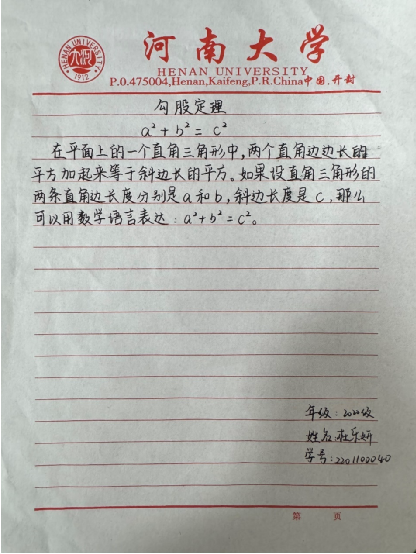 河南大学
HENAN UNIVERSITY
P.O.475004,Henan,Kaifeng,P.R.China中国.开封
HENAN UNIVERSITY
1912
勾股定理
a²+b²=c²
在平面上的一个直角三角形中,两个直角边边长的
平方加起来等于斜边长的平方。如果设直角三角形的
两条直角边长度分别是a和b,斜边长度是c,那么
可以用数学语言表达:a²+b²=c²。
年级:2022级
姓名:杜乐妍
学号:2201100040
第 页